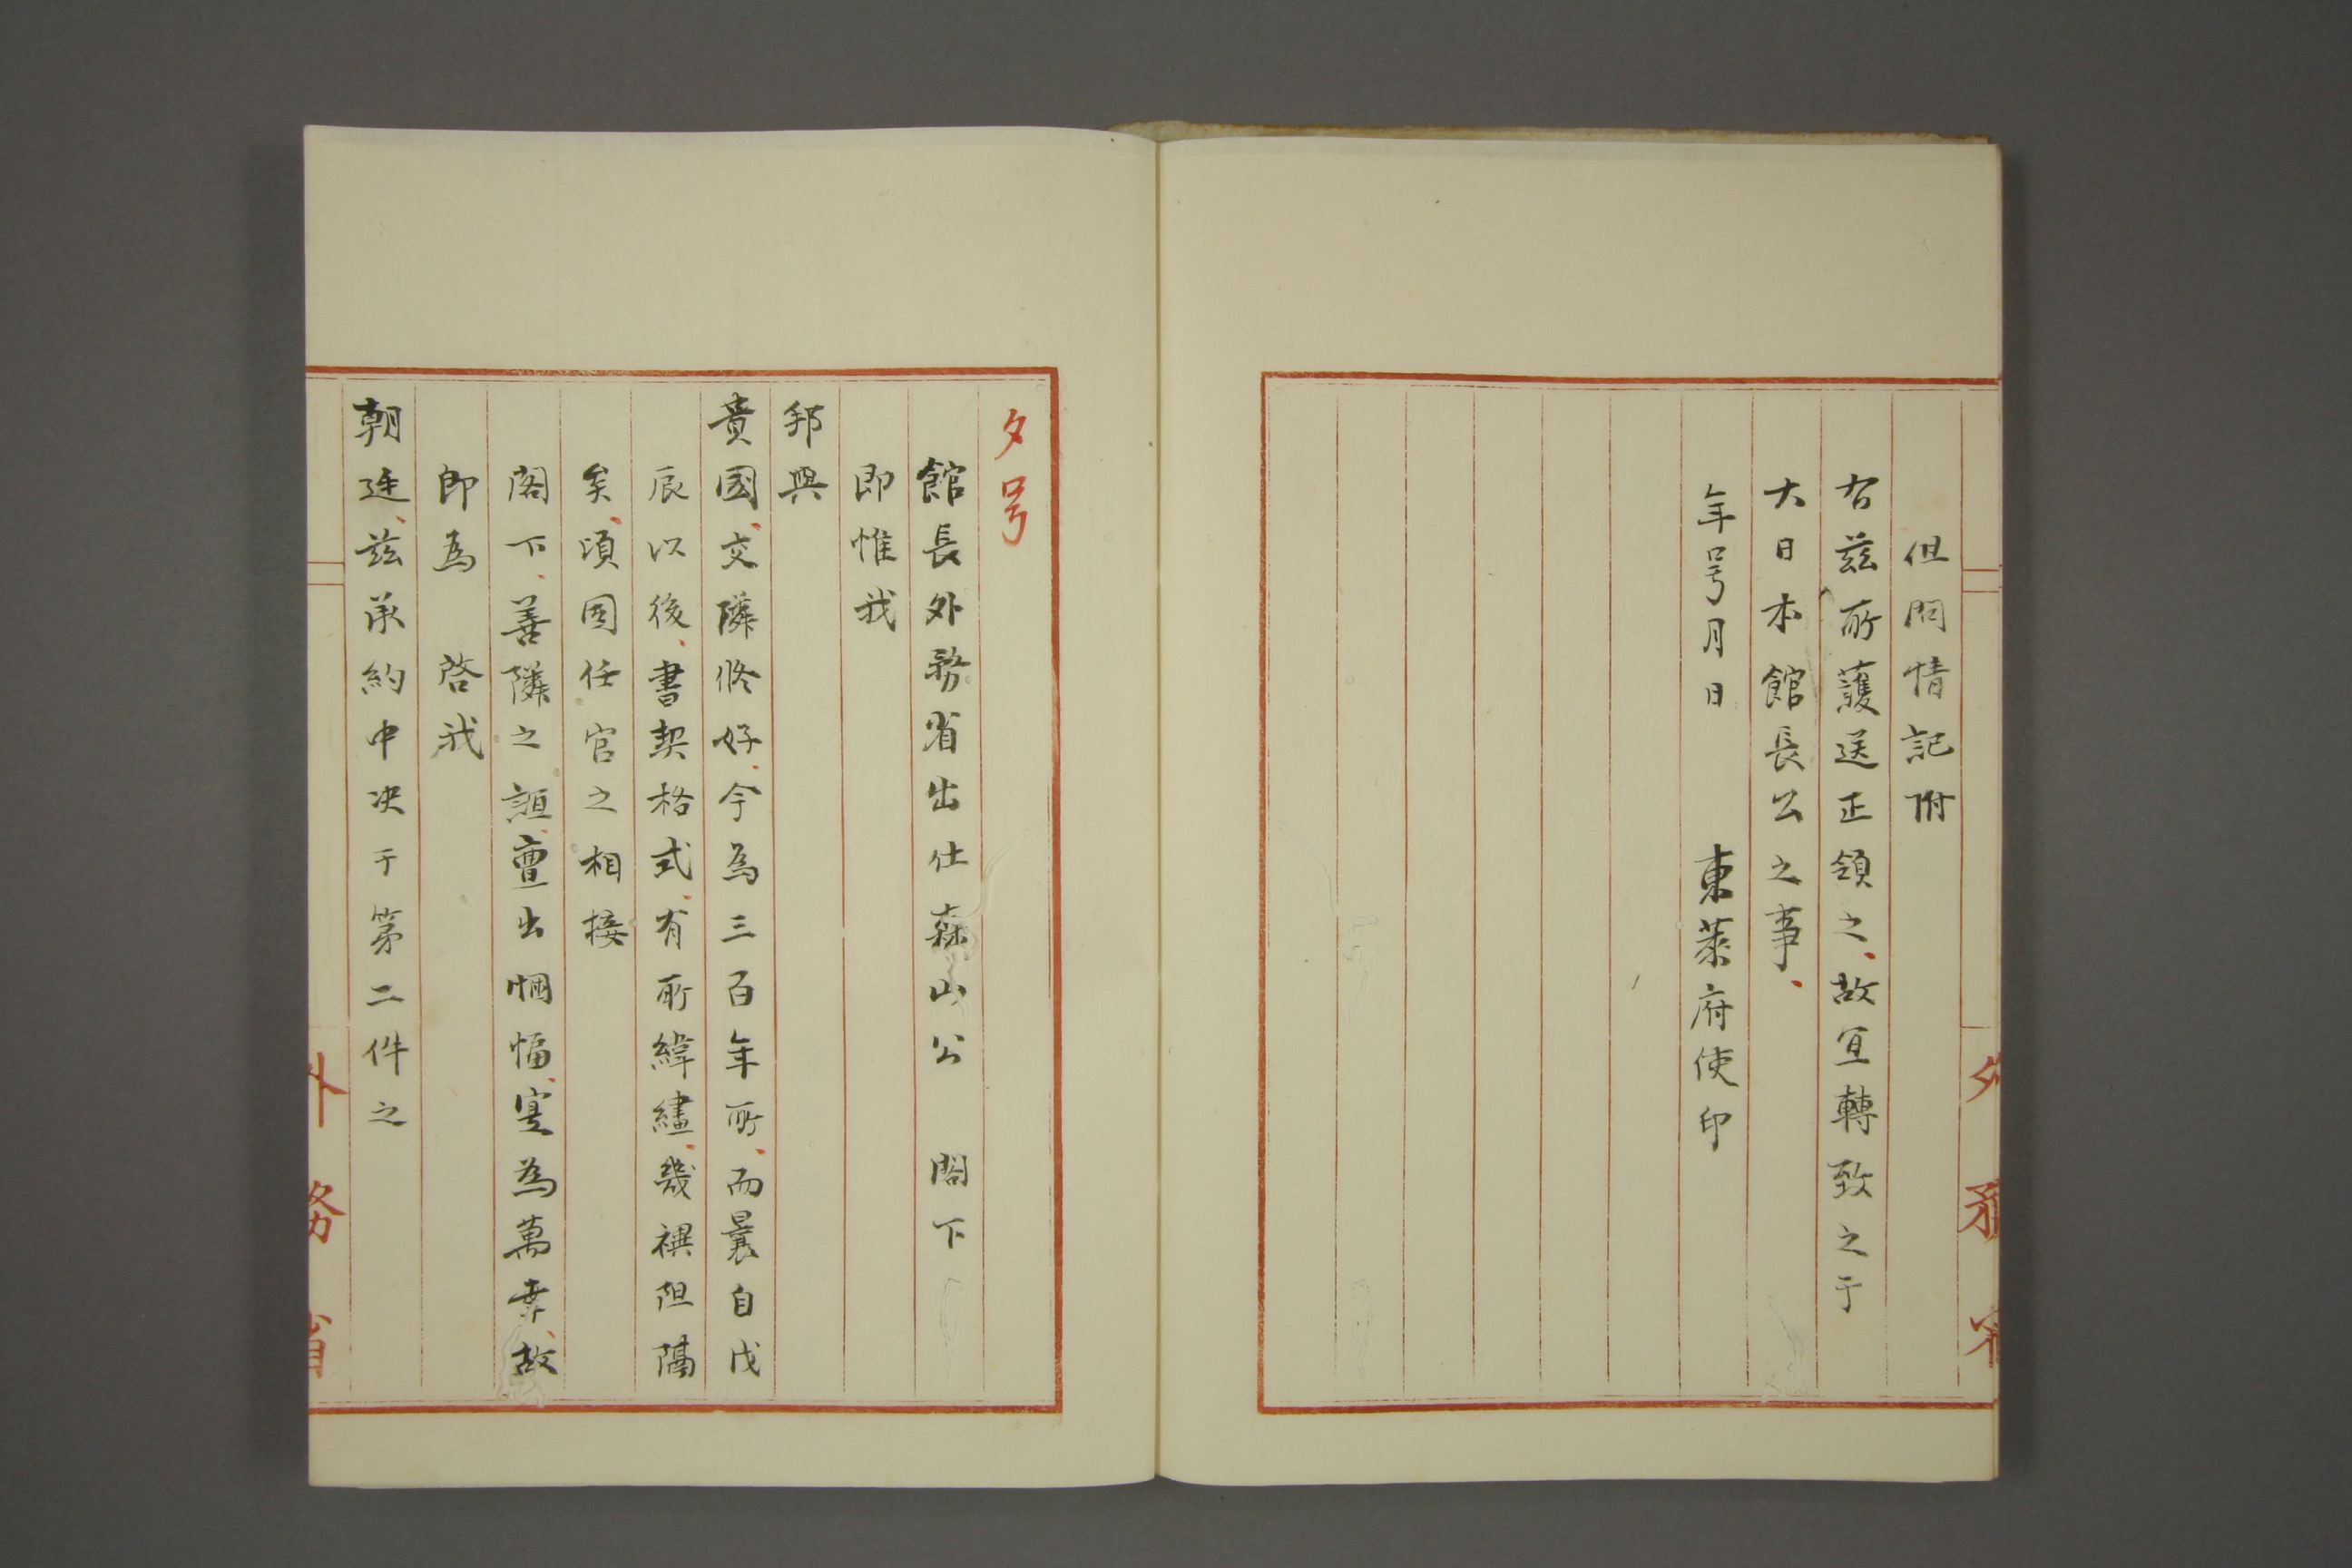 但問情記附
右茲所護送正領之、故宜轉致之于
大日本館長公之事、
年号月日　東萊府使印
夕号
館長外務省出仕森山公　閣下
即惟我
邦與
貴國、交隣修好、今為三百年所、而曩自戊
辰以後、書契格式、有所緯繣、幾禩阻隔
矣、頃因任官之相接
閣下、善隣之誼、亶出悃愊、寔為萬幸、故
即為　啓我
朝廷、茲承約中决于第二件之
外務省
外務省